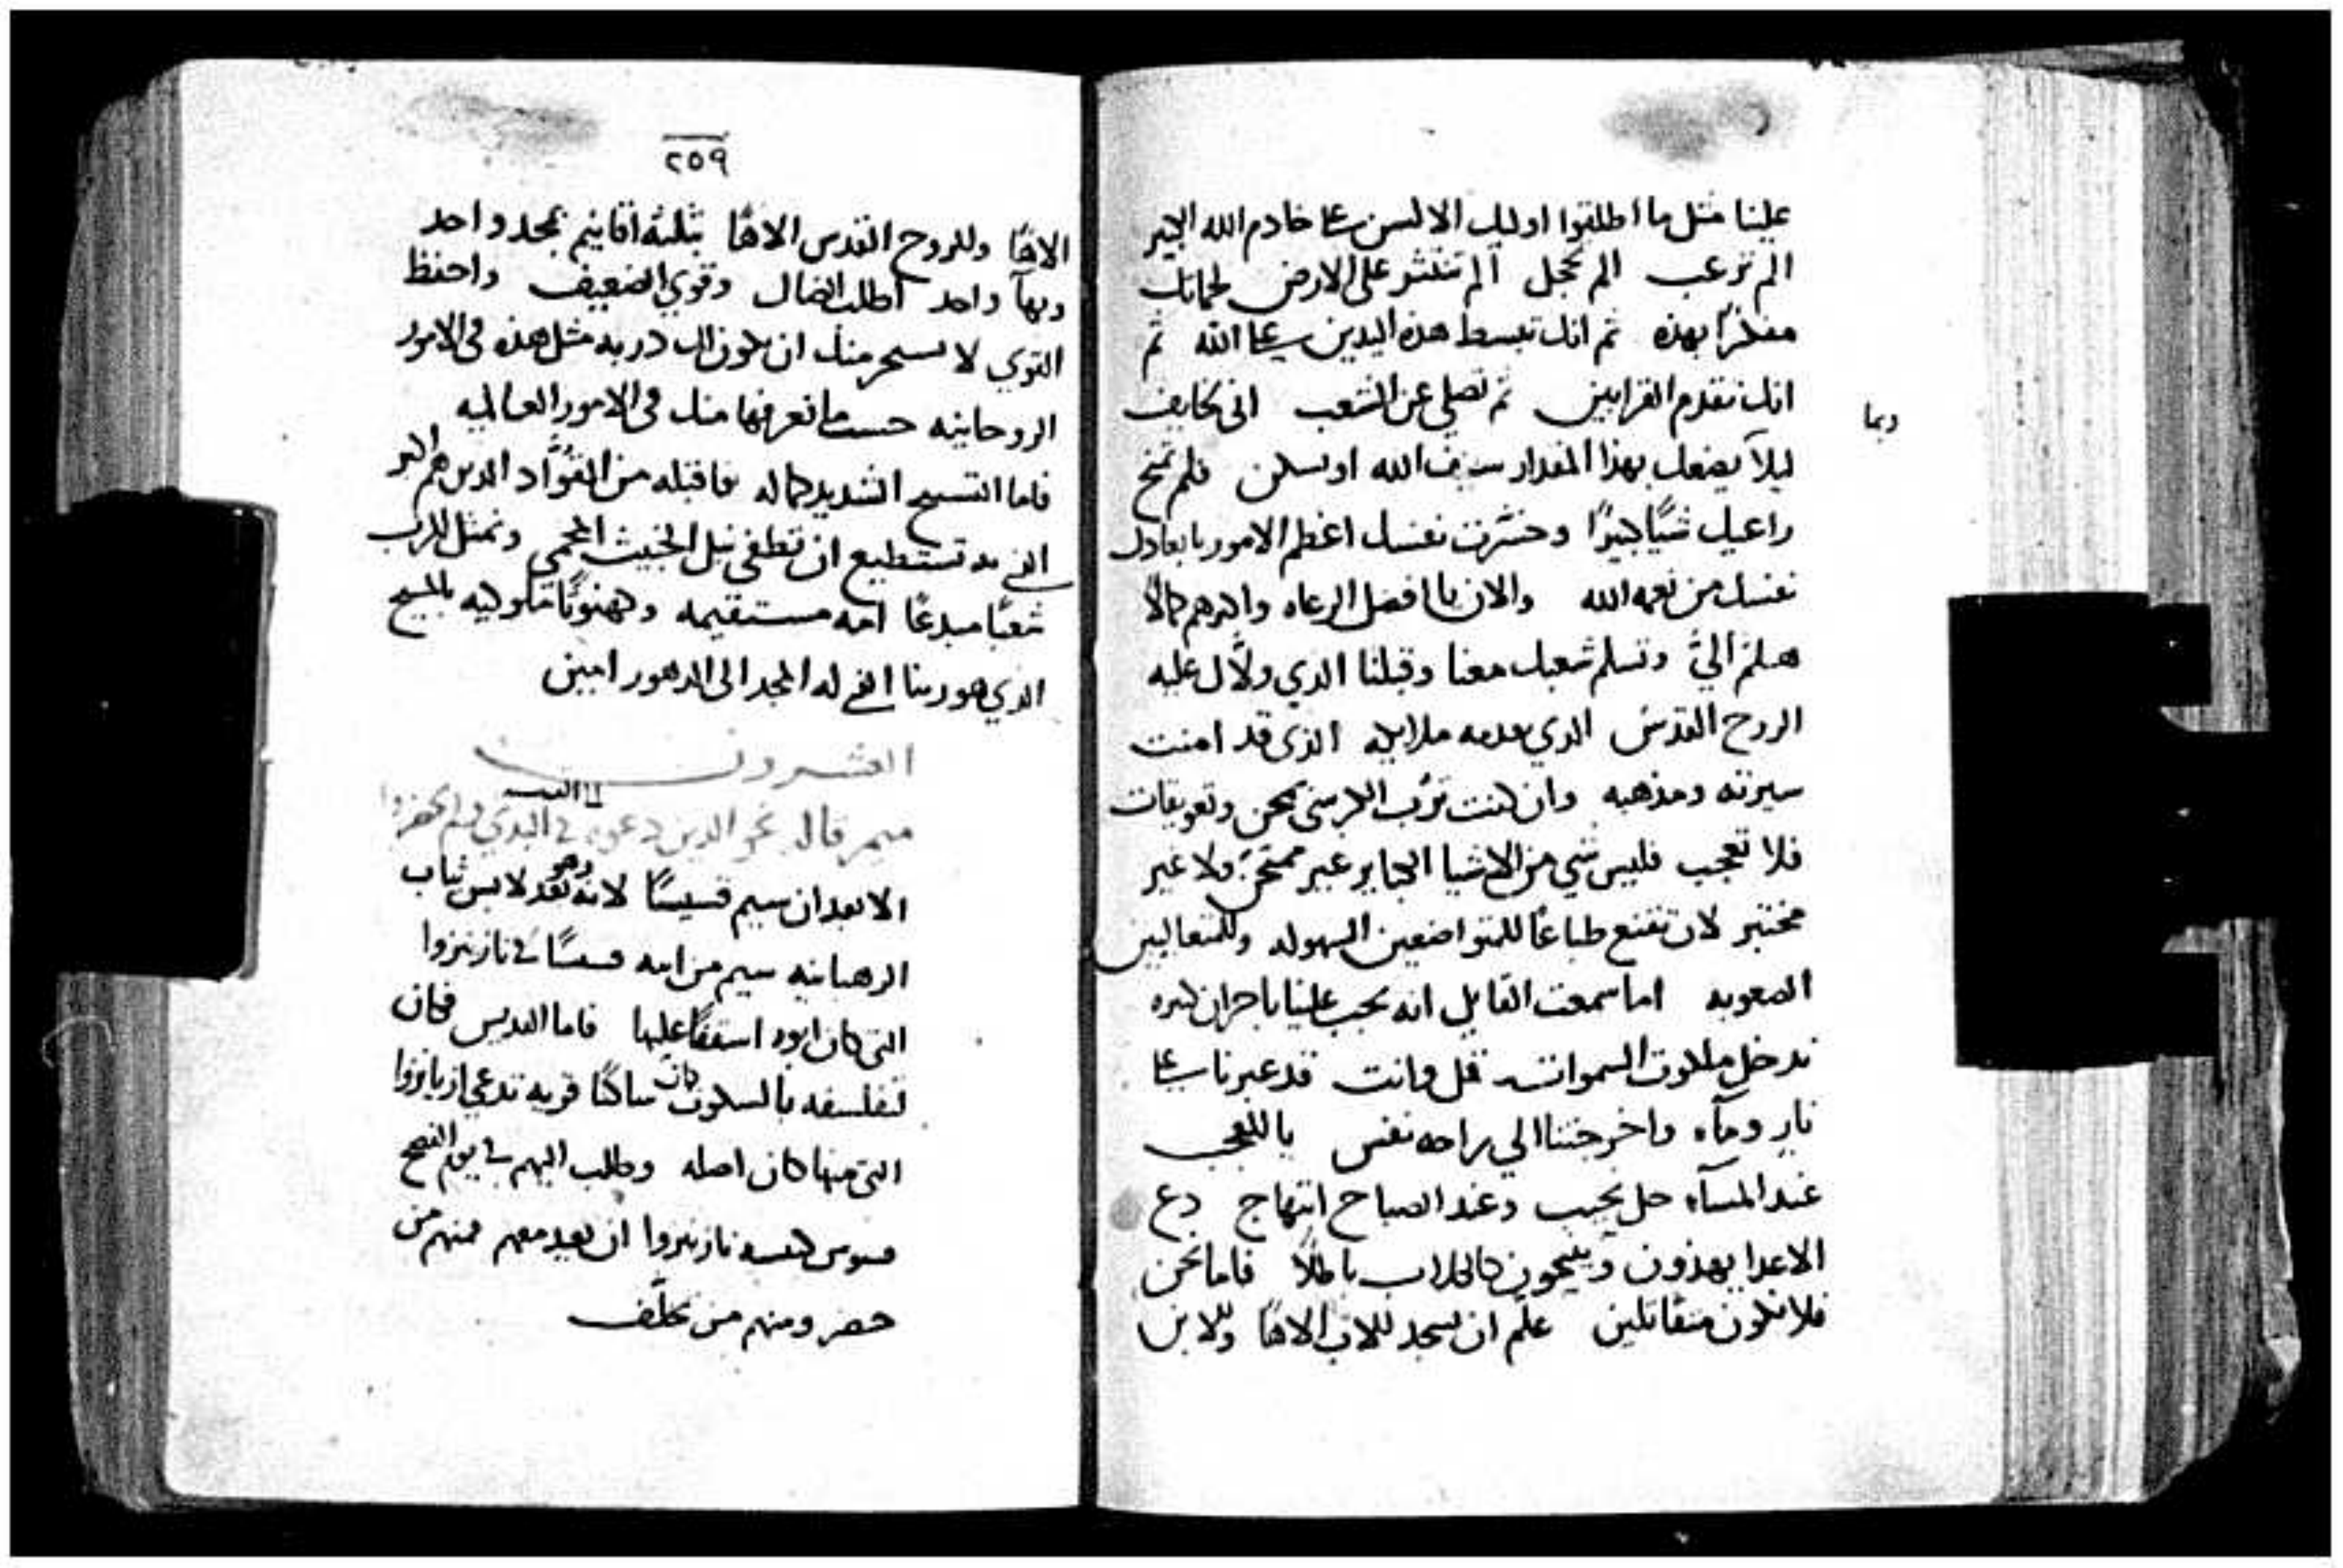 علينا مثل ما اطلقوا اوليك الالسن على خادم الله الكبير
الم ترعب الم تخجل الم تنتثر على الارض لحمانك
مفكرًا بهذه ثم انك تبسط هذه اليدين على الله ثم
انك تقدم القرابين ثم تصلي عن الشعب انى لخايف
وبما
ليلا يفعل بهذا المقدار سيف الله او يسكن فلم تمنح
راعيك شيًا كبيرًا وخسّرت نفسك اعظم الامور بابعادك
نفسك من نعمه الله والان يا افضل الرعاه واكرمهم كمالا
هلمّ اليّ وتسلم شعبك معنا وقبلنا الذي ولاك عليه
الروح القدس الذي ملايكه الذي قد امنت
سيرته ومذهبه وان كنت ترب الكرسى بمحن وتعويقات
فلا تعجب فليس شي من الاشيا الكباير غير ممتحن ولا غير
مختبر لان تقنع طباعًا للمتواضعين السهوله وللمتعاليين
الصعوبه اما سمعت القايل انه يجب علينا باحزان كثيره
ندخل ملكوت السموات قل وانت قد عبرنا على
نار ومآء واخرجتنا الي راحه نفس يا للعجب
عند المسآء حل نحيب وعند الصباح ابتهاج دع
الاعدا يهذون وينبحون كالكلاب باطلًا فاما نحن
فلا نكون متقاتلين علّم ان يسجد للاب الاهًا وللابن
٢٥٩
الاهًا وللروح القدس الاهًا بثلثة اقانيم بمجد واحد
وبهآ واحد اطلب الضال وقوي الضعيف واحفظ
القوي منك ان يكون لك دربه مثل هذه فى الامور
الروحانيه حسب ما نعرفها منك فى الامور العالميه
فاما التسبيح الشديد كماله فاقبله من القوّاد الذين هم اكبر
الذي به تستطيع ان تطفي نبل الخبيث المحمي وتمثل للرب
شعبًا مبدعًا امه مستقيمه وكهنوتًا ملوكيه بالمسيح
الذي هو ربنا الذي له المجد الى الدهور امين
العشرون
ميمر قاله نحو الذين دعوه في البدي ولم يحضروا
الا بعد ان سيم قسيسًا لانه وهو بعد لابس ثياب
الرهبانيه سيم من ابيه قسيسًا في نازينزوا
التى كان ابوه اسقفًا عليها فاما القديس فكان
لتفلسفه بالسكون كان ساكنًا قريه تدعى ازيانزوا
التى منها كان اصله وطلب اليهم في يوم الفصح
قسوس كنيسه نازينزوا ان يعيد معهم فمنهم من
حضر ومنهم من تخلّف